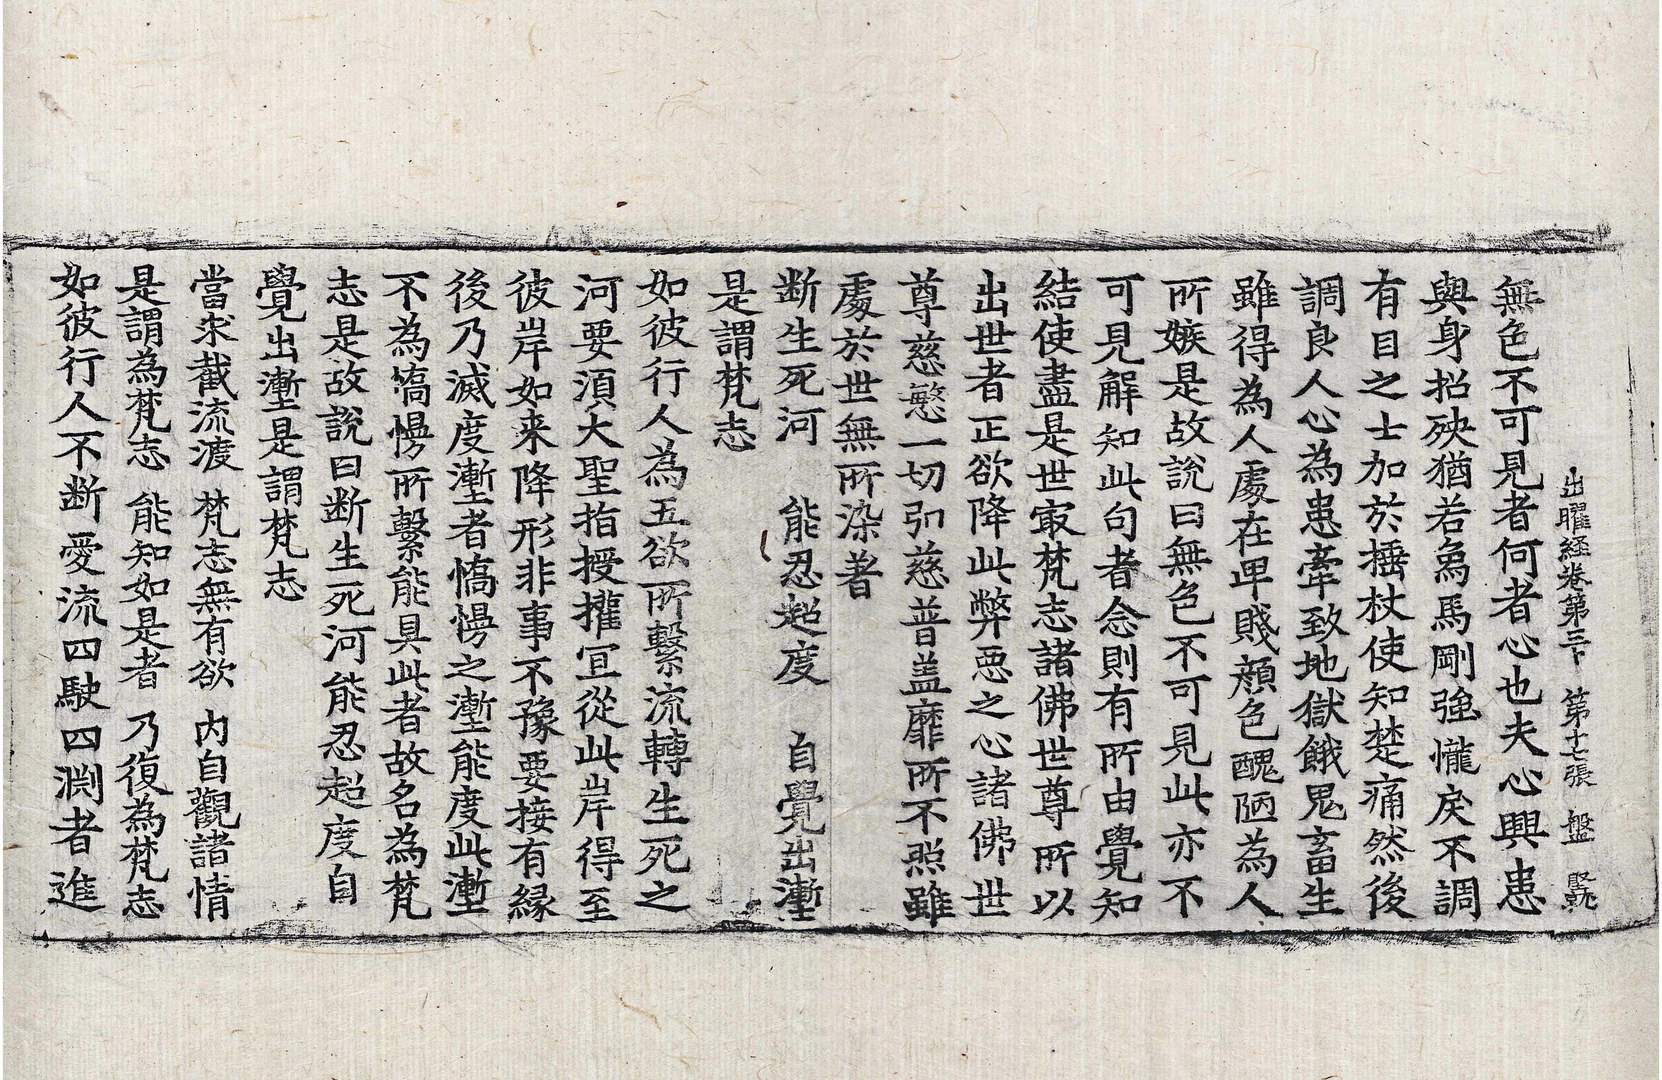 出曜経卷第三十　第十七張　盤
無色不可見者何者心也夫心興恚
與身招殃猶若象馬剛強儱戾不調
有目之士加於捶杖使知楚痛然後
調良人心為恚牽致地獄餓鬼畜生
雖得為人處在卑賤顏色醜陋為人
所嫉是故說曰無色不可見此亦不
可見解知此句者念則有所由覺知
結使盡是世㝡梵志諸佛世尊所以
出世者正欲降此弊惡之心諸佛世
尊慈愍一切引慈普盖靡所不照雖
處於世無所染著
断生死河　能忍超度　自覺出壍
是謂梵志
如彼行人為五欲所繫流轉生死之
河要湏大聖指授攉冝從此岸得至
彼岸如来降形非事不豫要接有縁
後乃滅度壍者憍慢之壍能度此壍
不為憍慢所繫能具此者故名為梵
志是故說曰断生死河能忍超度自
覺出壍是謂梵志
當求截流渡　梵志無有欲　內自觀諸情
是謂為梵志　能知如是者　乃復為梵志
如彼行人不断愛流四駛四渊者進